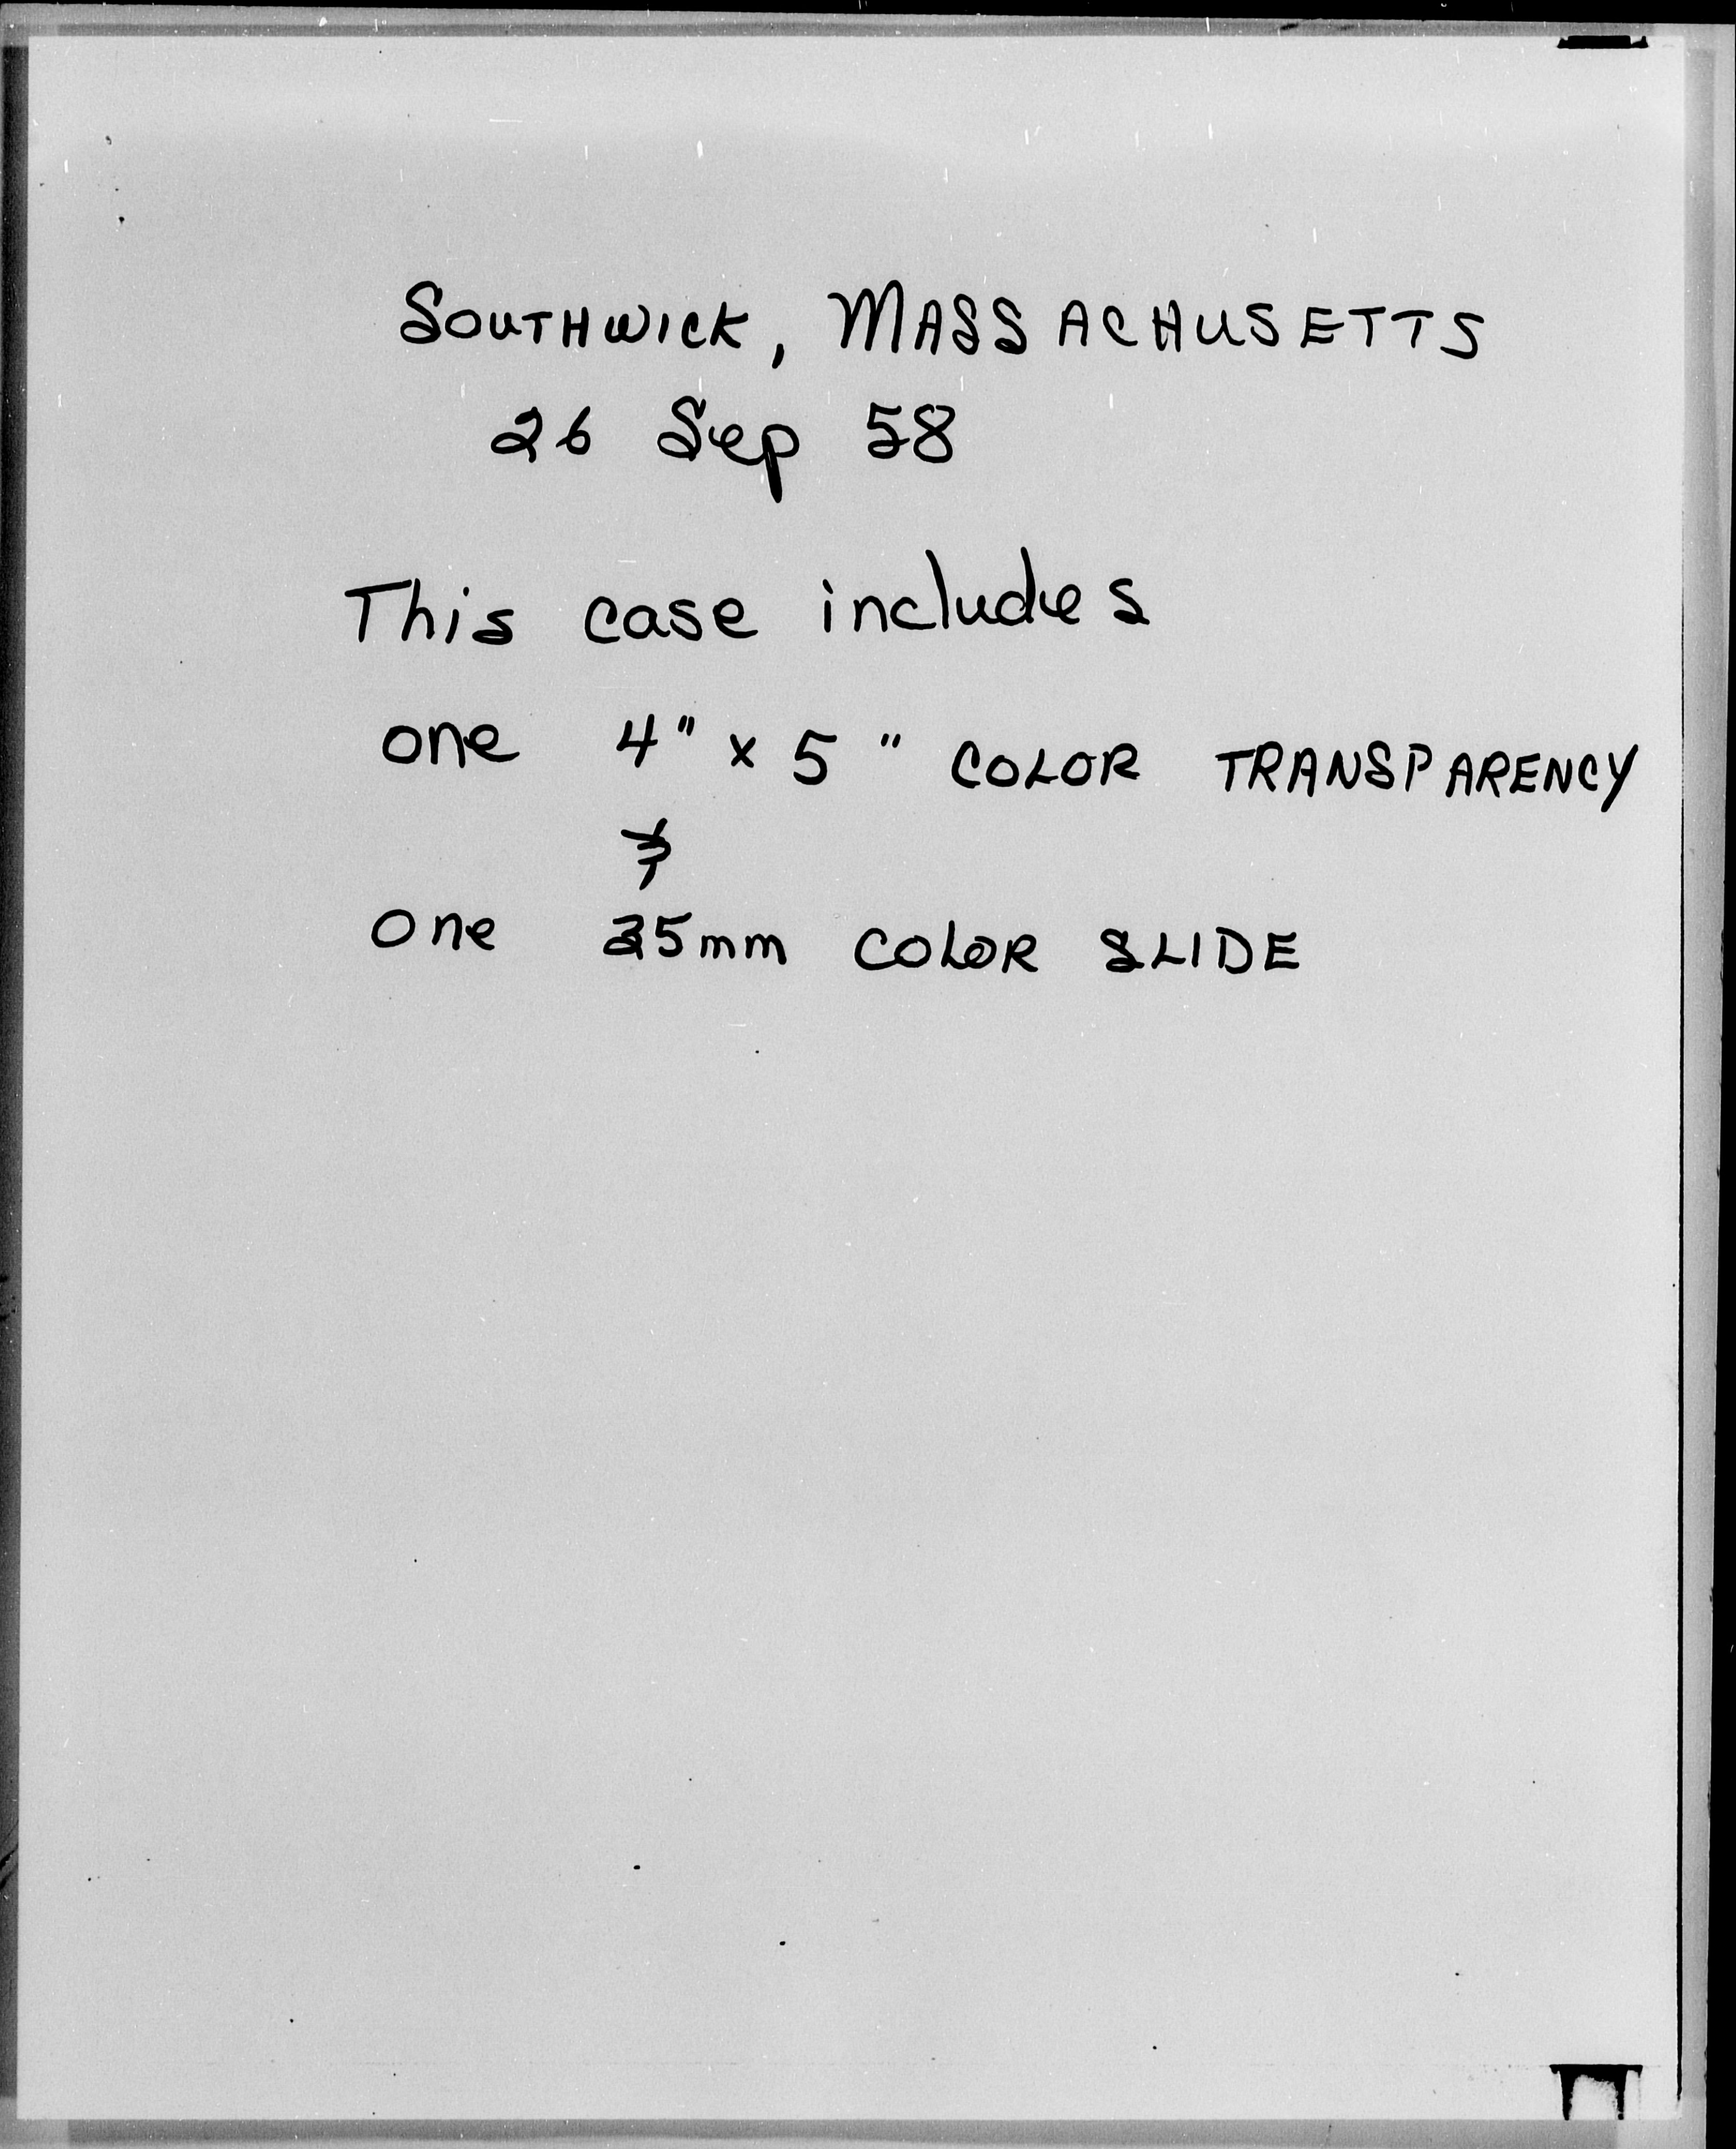 SOUTHWICK, MASSACHUSETTS
26 Sep 58
This case includes
one 4" x 5" COLOR TRANSPARENCY
&
One 35mm COLOR SLIDE